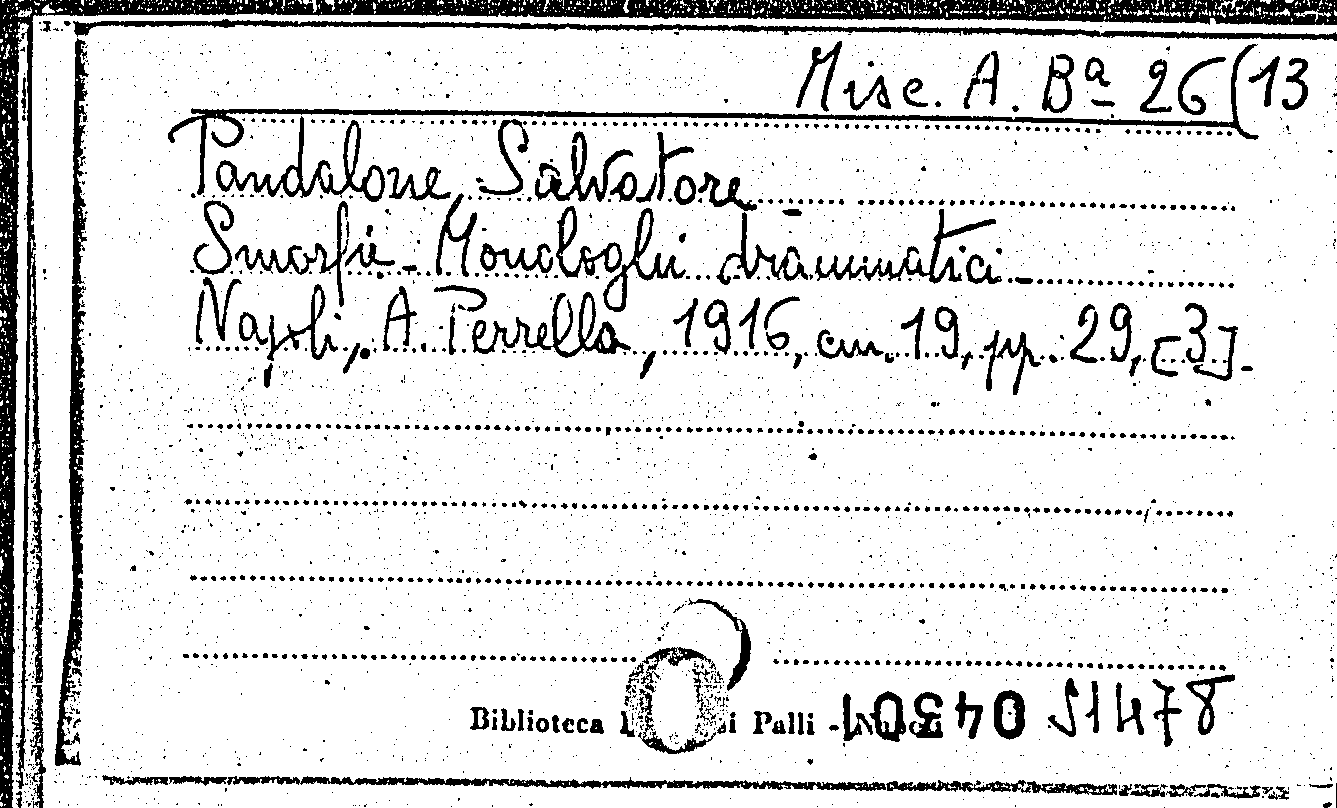 Misc. A. Bª 26(13
Pandalone, Salvatore -
Smorfie - Monologhi drammatici -
Napoli, A. Perrella, 1916, cm. 19, pp. 29, [3] -
Biblioteca Palli - 51478